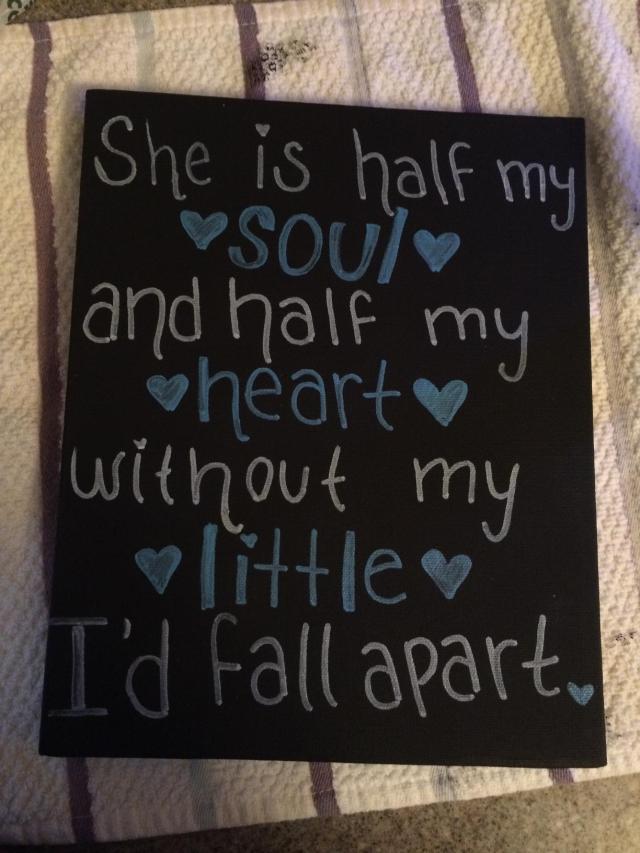 She is half my
soul
and half my
heart
without my
little
I'd fall apart.